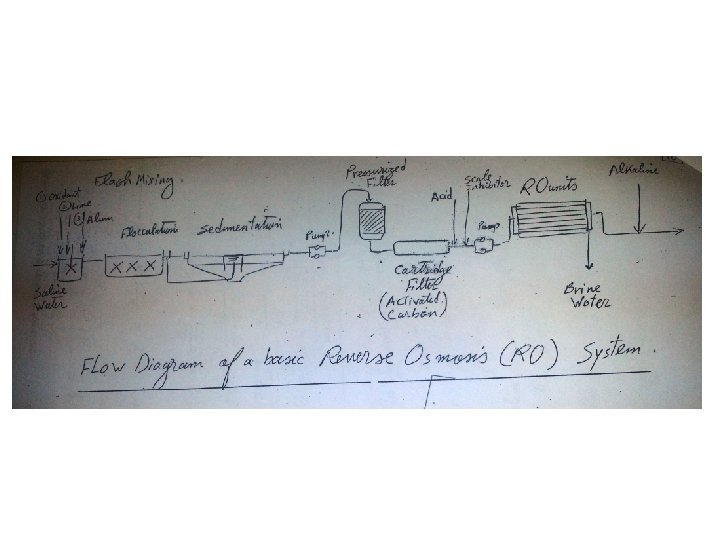 Flash Mixing.
① oxidant
② Lime
③ Alum
Saline
Water
Flocculation
Sedimentation
Pump.
Pressurized
Filter
Cartridge
Filter
(Activated
Carbon)
Acid
Scale
Inhibitor
Pump
RO units
Brine
Water
Alkaline
Flow Diagram of a basic Reverse Osmosis (RO) System.